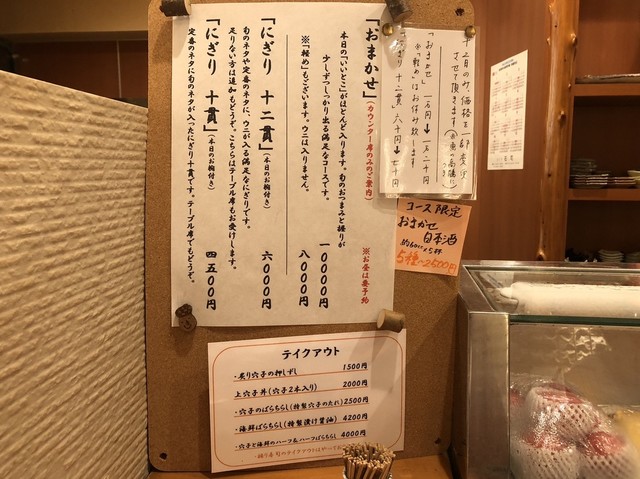 「おまかせ」(カウンター席のみのご案内) ※お昼は要予約
本日の「いいとこ」がほとんど入ります。旬のおつまみと握りが
少しずつしっかり出る満足なコースです。 一〇〇〇〇円
※「軽め」もございます。ウニは入りません。 八〇〇〇円
「にぎり 十二貫」(本日のお椀付き) 六〇〇〇円
旬のネタや定番のネタに、ウニが入る満足なにぎりです。
足りない方は追加もどうぞ。こちらはテーブル席もお受けします。
「にぎり 十貫」(本日のお椀付き) 四五〇〇円
定番のネタに旬のネタが入ったにぎり十貫です。テーブル席でもどうぞ。
十二月のみ、価格を一部変更
させて頂きます
「おまかせ」 一万円→一万二千円
※「軽め」はお休み致します
「にぎり 十二貫」 六千円→七千円
コース限定
おまかせ
日本酒
約60cc×5杯
5種〜2500円
テイクアウト
・炙り穴子の押しずし 1500円
・上穴子丼(穴子2本入り) 2000円
・穴子のばらちらし(特製穴子のたれ) 2500円
・海鮮ばらちらし(特製漬け醤油) 4200円
・穴子と海鮮のハーフ&ハーフばらちらし 4000円